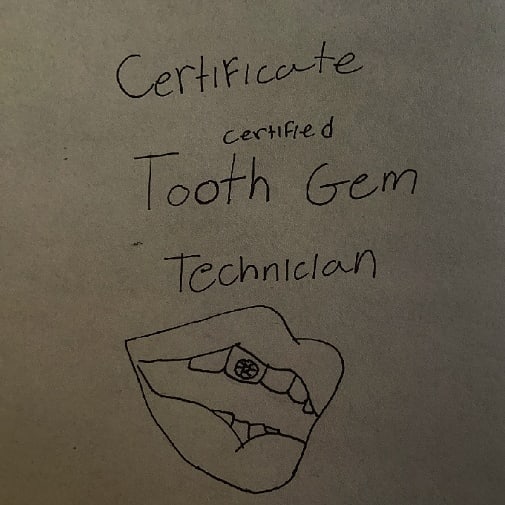 Certificate
certified
Tooth Gem
Technician